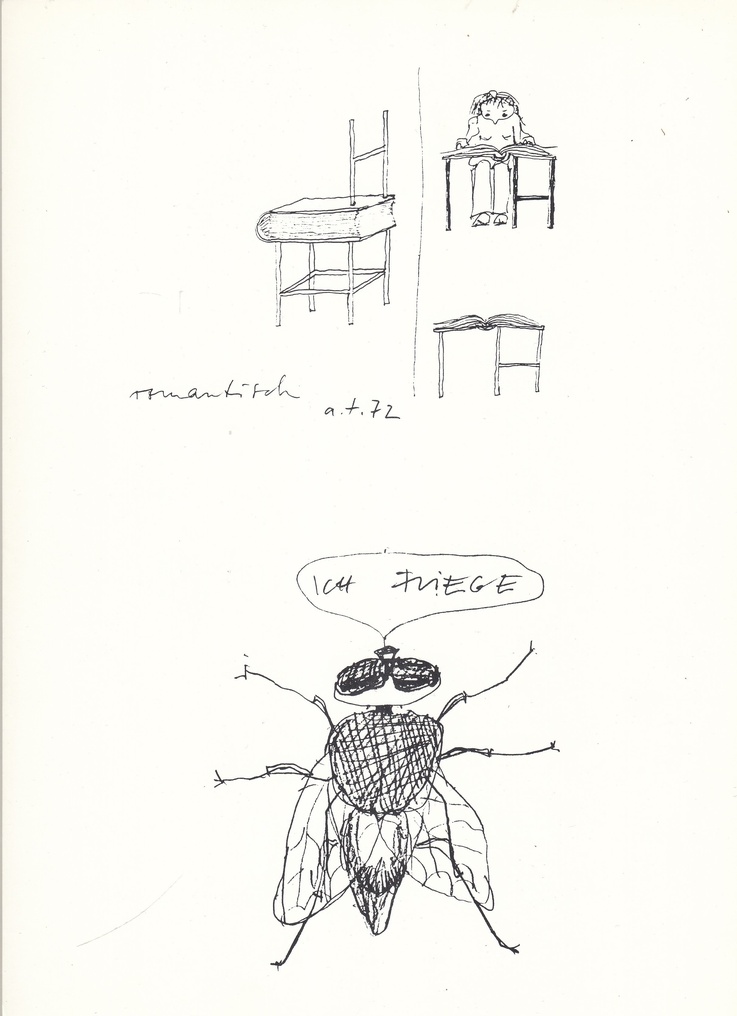 romantisch
a.t.72
ICH FLIEGE